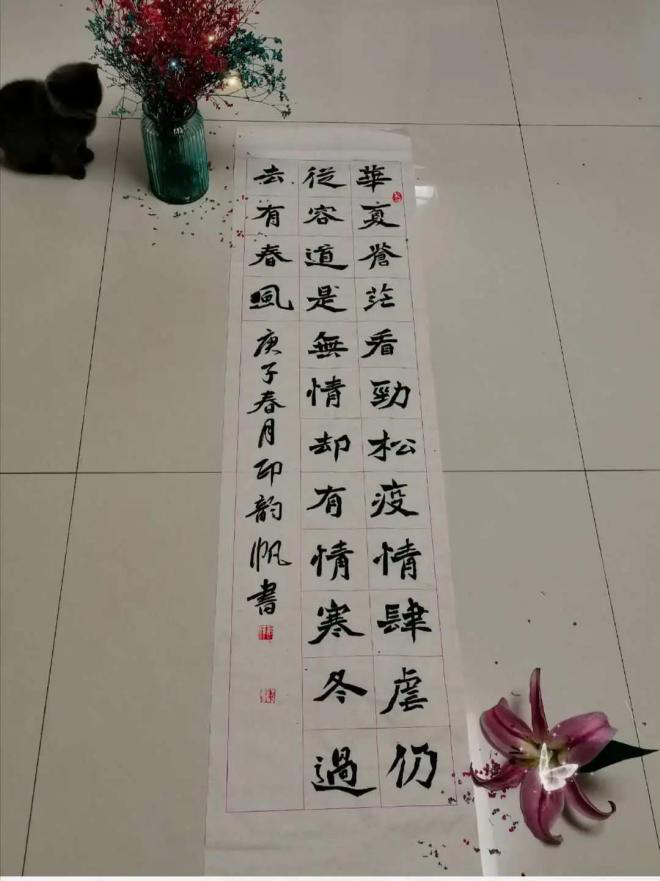 華夏蒼茫看勁松疫情肆虐仍
從容道是無情却有情寒冬過
去有春風庚子春月印韵帆書